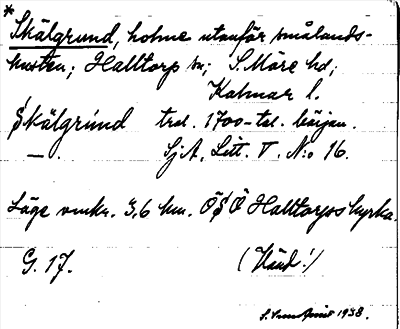 * Skälgrund, holme utanför smålands-
kusten; Halltorp sn; S. Möre hd;
Kalmar l.
Skälgrund trol. 1700-tal. början.
— . SjA. Litt. T. N:o 16.
Läge omkr. 3,6 km. ÖSÖ Halltorps kyrka.
G. 17. (Känd!)
1938.